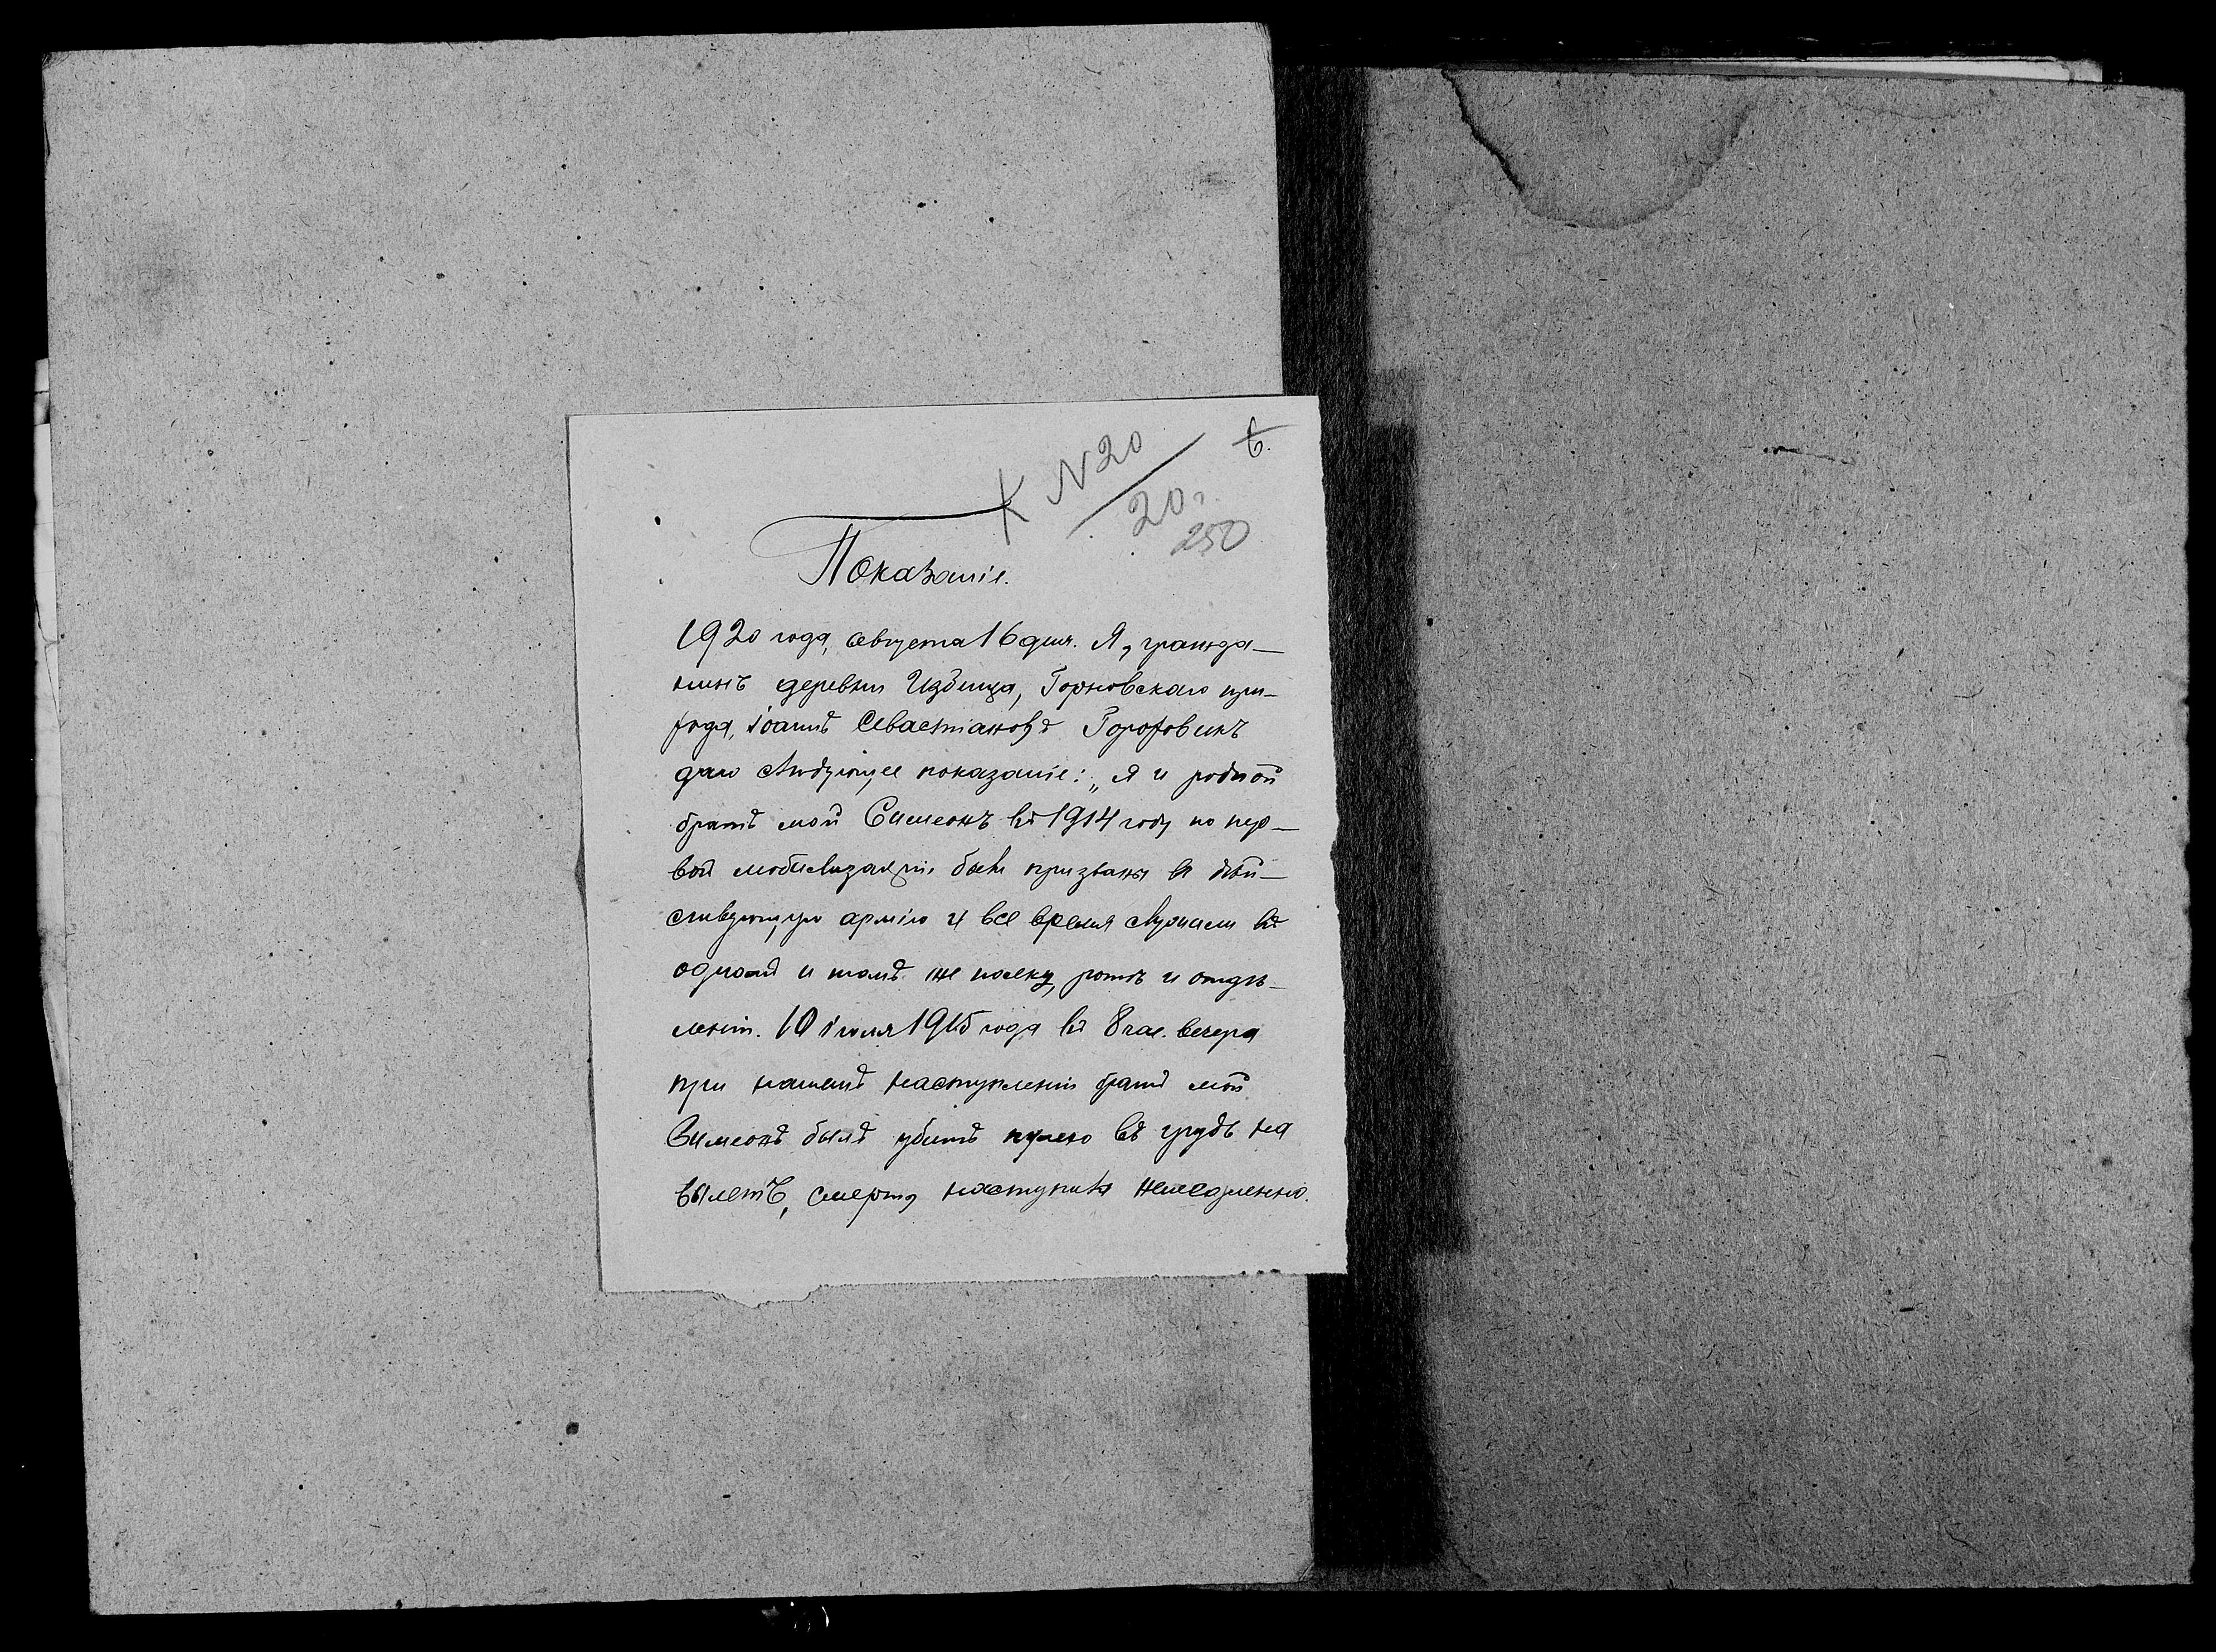 К N 20
6.
20 г.
250
Показаніе.
1920 года, августа 16 дня. Я, гражда-
нинъ деревни Избища, Горновскаго при-
хода, Іоаннъ Севастіановъ Горовикъ
даю слѣдующее показаніе: „Я и родной
братъ мой Симеонъ въ 1914 году по пер-
вой мобилизаціи были призваны въ дѣй-
ствующую армію и все время служили въ
одномъ и томъ же полку, ротѣ и отдѣ-
леніи. 10 іюля 1915 года въ 8 час. вечера
при нашемъ наступленіи братъ мой
Симеонъ былъ убитъ пулею въ грудь на
вылетъ, смерть наступила немедленно.